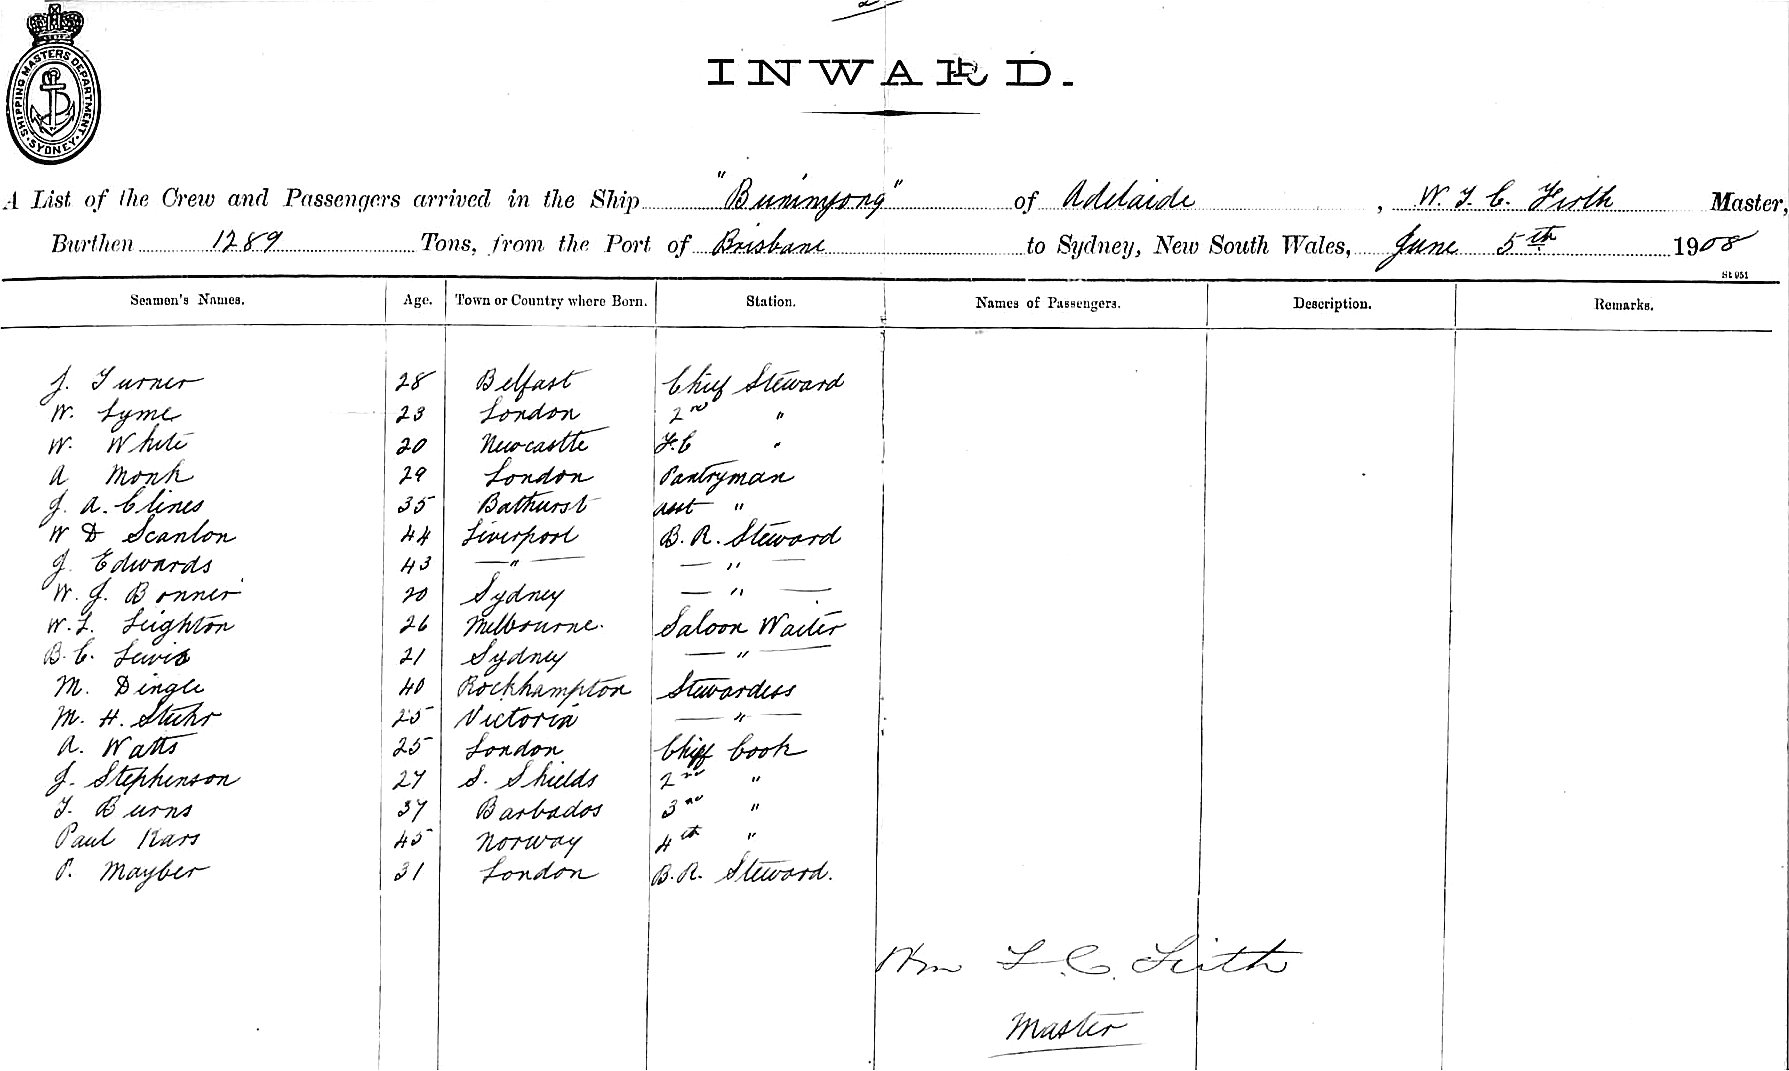 2
SHIPPING MASTERS DEPARTMENT. SYDNEY
INWARD.
A List of the Crew and Passengers arrived in the Ship "Buninyong" of Adelaide, W. F. C. Firth Master,
Burthen 1289 Tons, from the Port of Brisbane to Sydney, New South Wales, June 5th 1908
St 951
Seamen's Names. Age. Town or Country where Born. Station. Names of Passengers. Description. Remarks.
J. Turner 28 Belfast Chief Steward
W. Lyme 23 London 2nd "
W. White 20 Newcastle F.C "
A Monk 29 London Pantryman
J. A. Clines 35 Bathurst asst "
W D Scanlon 44 Liverpool B. R. Steward
J. Edwards 43 — " — — " —
W. J. Bonner 20 Sydney — " —
W. L. Leighton 26 Melbourne. Saloon Waiter
B. C. Lewis 21 Sydney — " —
M. Dingle 40 Rockhampton Stewardess
M. H. Stuhr 25 Victoria — " —
A. Watts 25 London Chief Cook
J. Stephenson 27 S. Shields 2nd "
T. Burns 37 Barbados 3rd "
Paul Kars 45 Norway 4th "
P. Mayber 31 London B.R. Steward.
Wm F. C. Firth
Master